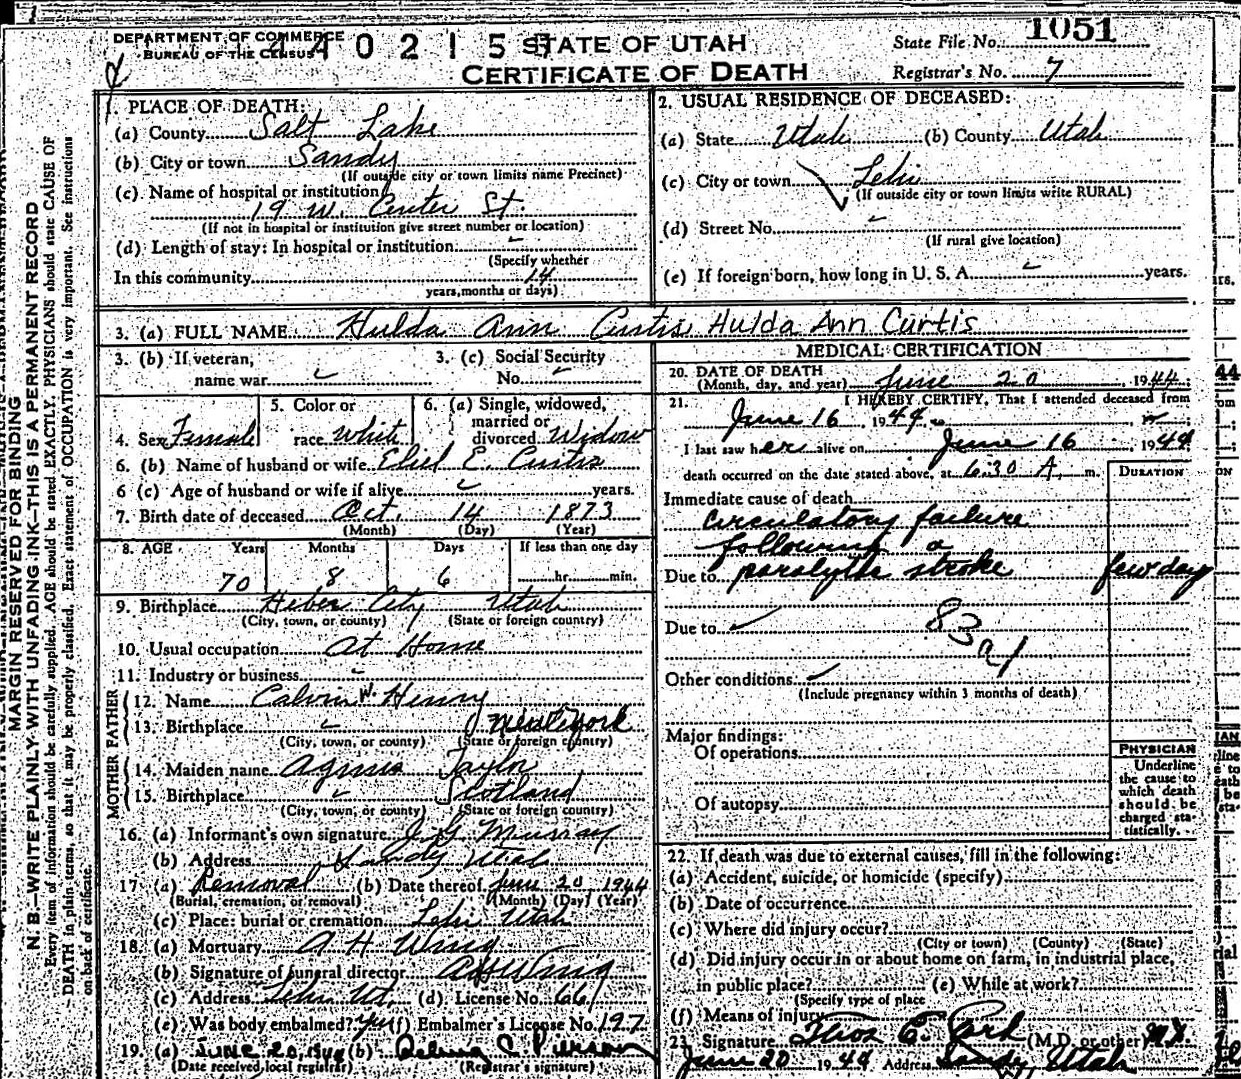 1
DEPARTMENT OF COMMERCE
BUREAU OF THE CENSUS
4402157
STATE OF UTAH
CERTIFICATE OF DEATH
State File No. 1051
Registrar's No. 7
MARGIN RESERVED FOR BINDING
N. B.—WRITE PLAINLY WITH UNFADING INK—THIS IS A PERMANENT RECORD
Every item of information should be carefully supplied. AGE should be stated EXACTLY. PHYSICIANS should state CAUSE OF
DEATH in plain terms, so that it may be properly classified. Exact statement of OCCUPATION is very important. See instructions
on back of certificate.
1. PLACE OF DEATH:
(a) County Salt Lake
(b) City or town Sandy
(If outside city or town limits name Precinct)
(c) Name of hospital or institution
19 W. Center St.
(If not in hospital or institution give street number or location)
(d) Length of stay: In hospital or institution
(Specify whether
In this community 14
years, months or days)
2. USUAL RESIDENCE OF DECEASED:
(a) State Utah (b) County Utah
(c) City or town Lehi
(If outside city or town limits write RURAL)
(d) Street No.
(If rural give location)
(e) If foreign born, how long in U. S. A. years.
3. (a) FULL NAME Hulda Ann Curtis Hulda Ann Curtis
3. (b) If veteran,
name war
3. (c) Social Security
No.
4. Sex Female
5. Color or
race White
6. (a) Single, widowed,
married or
divorced Widow
6. (b) Name of husband or wife E. Curtis
6 (c) Age of husband or wife if alive years.
7. Birth date of deceased Oct. 14 1873
(Month) (Day) (Year)
8. AGE Years Months Days If less than one day
70 8 6 hr. min.
9. Birthplace Heber City Utah
(City, town, or county) (State or foreign country)
10. Usual occupation At Home
11. Industry or business
FATHER
12. Name Calvin W. Henry
13. Birthplace New York
(City, town, or county) (State or foreign country)
MOTHER
14. Maiden name Agnes Taylor
15. Birthplace Scotland
(City, town, or county) (State or foreign country)
16. (a) Informant's own signature J. G. Murray
(b) Address Sandy Utah
17. (a) Removal (b) Date thereof June 20, 1944
(Burial, cremation, or removal) (Month) (Day) (Year)
(c) Place: burial or cremation Lehi Utah
18. (a) Mortuary A. H. Wing
(b) Signature of funeral director A H Wing
(c) Address Lehi Ut. (d) License No. 661
(e) Was body embalmed? Yes (f) Embalmer's License No. 197
19. (a) JUNE 20, 1944 (b) C. Pierson
(Date received local registrar) (Registrar's signature)
MEDICAL CERTIFICATION
20. DATE OF DEATH
(Month, day, and year) June 20, 1944
21. I HEREBY CERTIFY, That I attended deceased from
June 16, 1944
I last saw her alive on June 16 1944
death occurred on the date stated above, at 6:30 A. m.
DURATION
Immediate cause of death
circulatory failure
following a
Due to paralytic stroke few day
Due to
83 a1
Other conditions
(Include pregnancy within 3 months of death)
Major findings:
Of operations
Of autopsy
PHYSICIAN
Underline
the cause to
which death
should be
charged sta-
tistically.
22. If death was due to external causes, fill in the following:
(a) Accident, suicide, or homicide (specify)
(b) Date of occurrence
(c) Where did injury occur?
(City or town) (County) (State)
(d) Did injury occur in or about home on farm, in industrial place,
in public place? (e) While at work?
(Specify type of place
(f) Means of injury
23. Signature (M.D. or other) M.D.
June 20 1944 Address Sandy, Utah